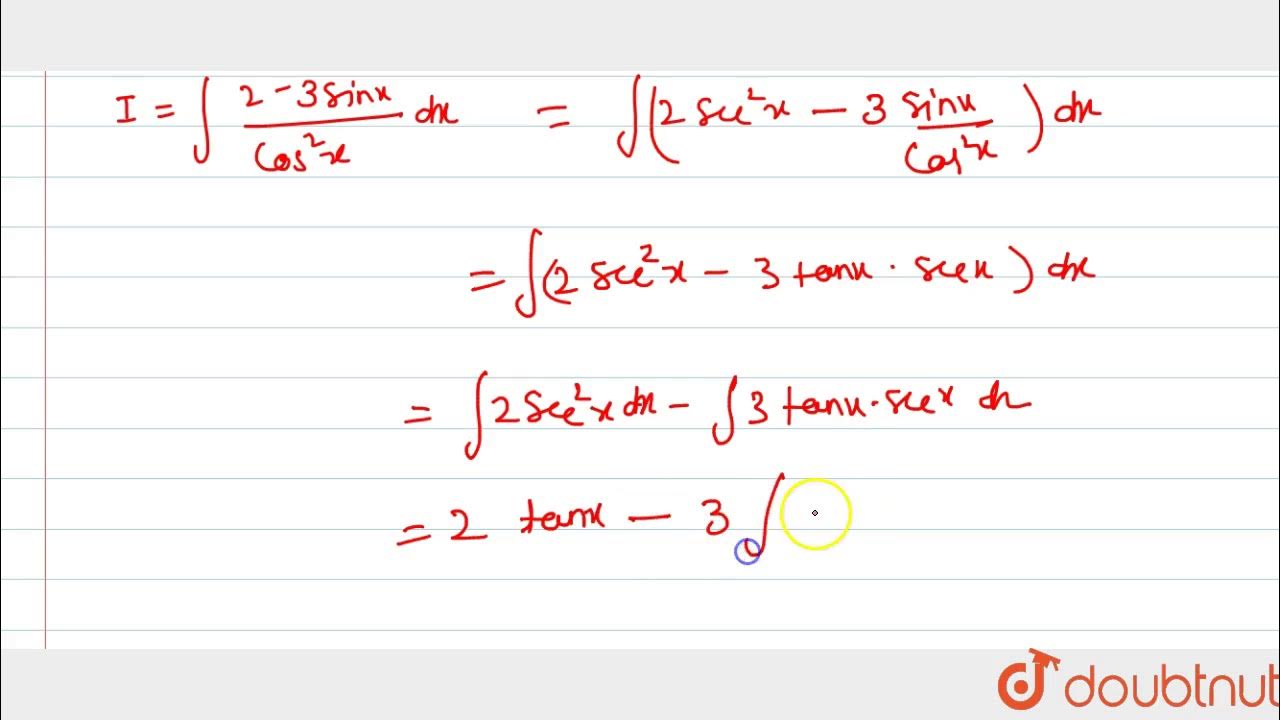 I = ∫ (2 - 3 sinx)/(cos²x) dx = ∫(2 sec²x - 3 sinx/cos²x) dx
= ∫(2 sec²x - 3 tanx · secx) dx
= ∫2 sec²x dx - ∫3 tanx · secx dx
= 2 tanx - 3∫
doubtnut